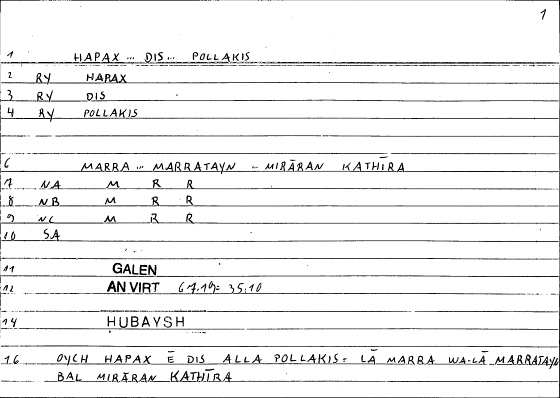 1
1 HAPAX ... DIS ... POLLAKIS
2 RY HAPAX
3 RY DIS
4 RY POLLAKIS
6 MARRA ... MARRATAYN - MIRĀRAN KATHĪRA
7 NA M R R
8 NB M R R
9 NC M R R
10 SA
11 GALEN
12 AN VIRT 67.19= 35.10
14 HUBAYSH
16 OYCH HAPAX Ē DIS ALLA POLLAKIS = LĀ MARRA WA-LĀ MARRATAYN
BAL MIRĀRAN KATHĪRA